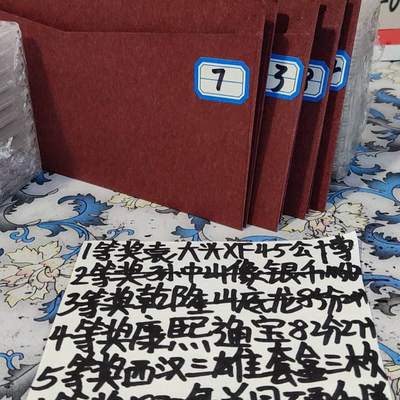 7
3
1等奖袁大头XF45公博
2等奖孙中山像银币
3等奖乾隆山底龙85分
4等奖康熙通宝82分
5等奖西汉三雄套盒三枚